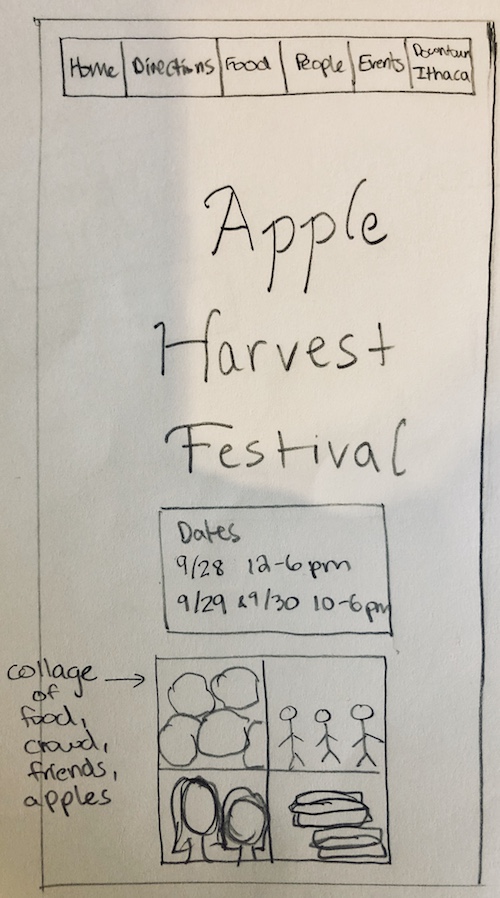 Home Directions Food People Events Downtown
Ithaca
Apple
Harvest
Festival
Dates
9/28 12-6pm
9/29 & 9/30 10-6pm
collage
of
food,
crowd,
friends,
apples